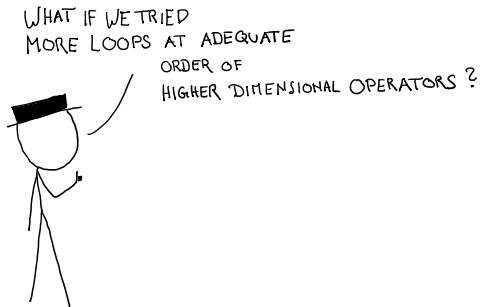 WHAT IF WE TRIED
MORE LOOPS AT ADEQUATE
ORDER OF
HIGHER DIMENSIONAL OPERATORS?